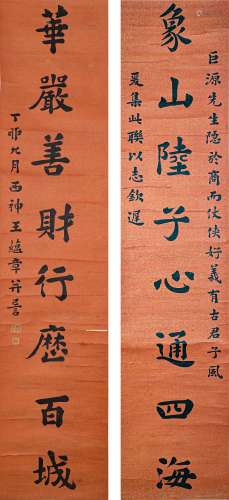 象山陸子心通四海
巨源先生隱於商而伉俠好義有古君子風
爰集此聯以志欽遲
華嚴善財行歷百城
丁卯九月西神王蘊章并書